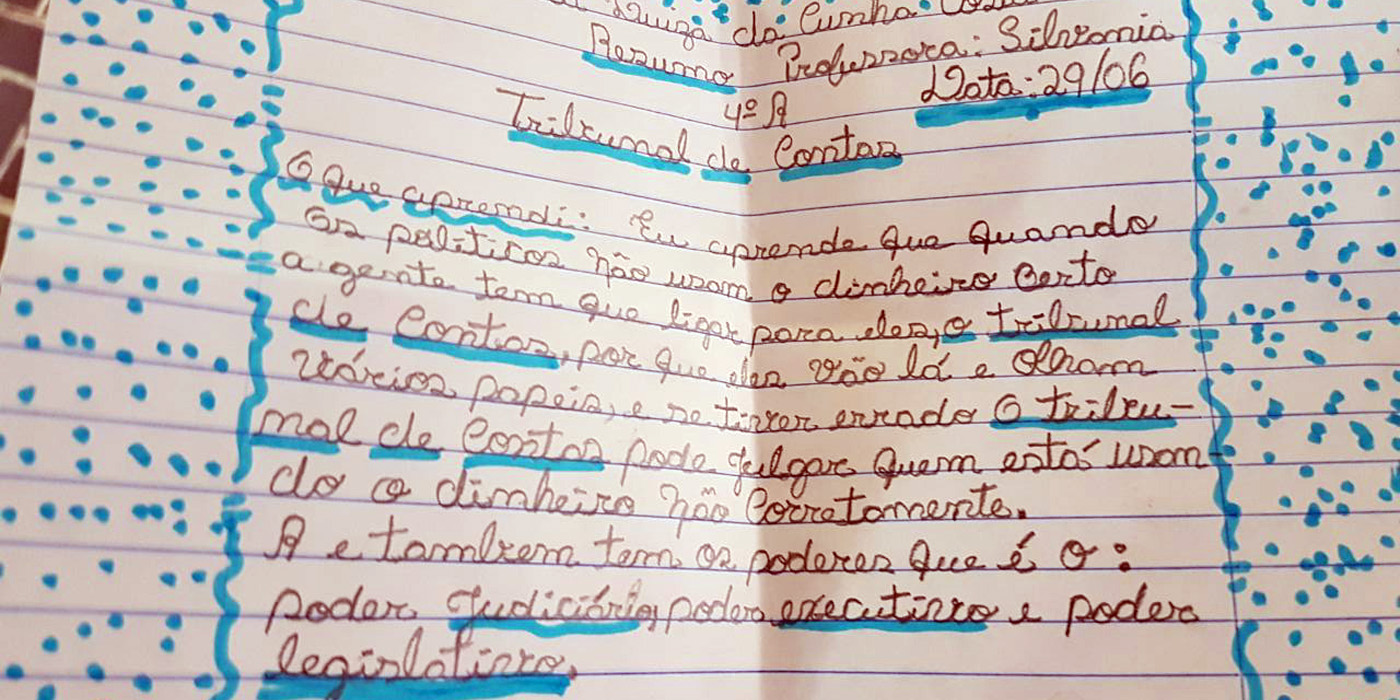 Luiza da Cunha
Resumo Professora: Silvania
4º A Data: 29/06
Tribunal de Contas
O que aprendi: Eu aprende que quando
os politicos não usam o dinheiro certo
a gente tem que ligar para eles, o tribunal
de contas, por que eles vão lá e olham
vários papeis, e se tiver errado o tribu-
nal de contas pode julgar quem está usan
do o dinheiro não corretamente.
A e tambem tem os poderes que é o:
poder judiciário, poder executivo e poder
legislativo.